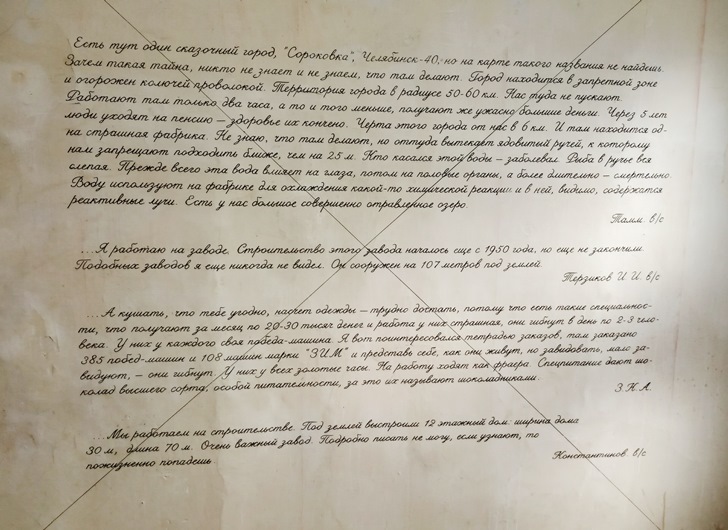 Есть тут один сказочный город, "Сороковка", Челябинск-40, но на карте такого названия не найдешь.
Зачем такая тайна, никто не знает и не знаем, что там делают. Город находится в запретной зоне
и огорожен колючей проволокой. Территория города в радиусе 50-60 км. Нас туда не пускают.
Работают там только два часа, а то и того меньше, получают же ужасно большие деньги. Через 5 лет
люди уходят на пенсию – здоровье их кончено. Черта этого города от нас в 6 км. И там находится од-
на страшная фабрика. Не знаю, что там делают, но оттуда вытекает ядовитый ручей, к которому
нам запрещают подходить ближе, чем на 25 м. Кто касался этой воды – заболевал. Рыба в ручье вся
слепая. Прежде всего эта вода влияет на глаза, потом на половые органы, а более длительно – смертельно.
Воду используют на фабрике для охлаждения какой-то химической реакции и в ней, видимо, содержатся
реактивные лучи. Есть у нас большое совершенно отравленное озеро.
Тамм. в/с
...Я работаю на заводе. Строительство этого завода началось еще с 1950 года, но еще не закончили.
Подобных заводов я еще никогда не видел. Он сооружен на 107 метров под землей.
Терзиков И. И. в/с
...А кушать, что тебе угодно, насчет одежды – трудно достать, потому что есть такие специальнос-
ти, что получают за месяц по 20-30 тысяч денег и работа у них страшная, они гибнут в день по 2-3 чело-
века. У них у каждого своя победа-машина. Я вот поинтересовался тетрадью заказов, там заказано
385 побед-машин и 108 машин марки "ЗИМ" и представь себе, как они живут, но завидовать, мало за-
видуют, – они гибнут. У них у всех золотые часы. На работу ходят как фраера. Спецпитание дают шо-
колад высшего сорта, особой питательности, за это их называют шоколадниками.
З.Н.А.
...Мы работаем на строительстве. Под землей выстроили 12 этажный дом: ширина дома
30 м, длина 70 м. Очень важный завод. Подробно писать не могу, если узнают, то
пожизненно попадешь.
Константинов. в/с